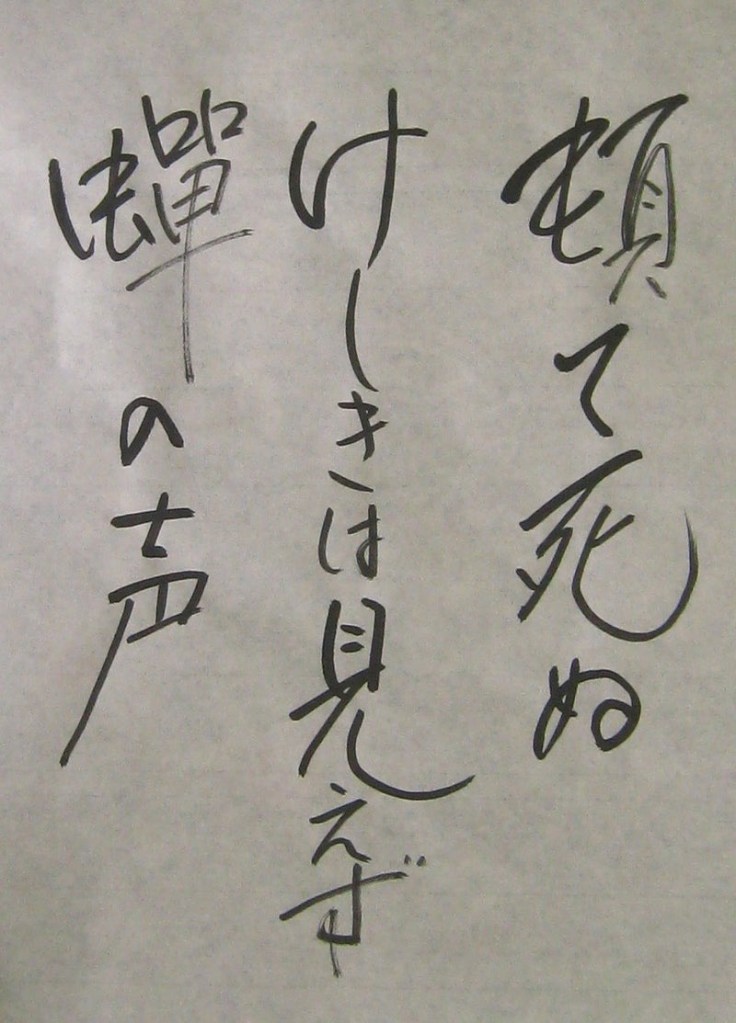 頓て死ぬ
けしきは見えず
蟬の声